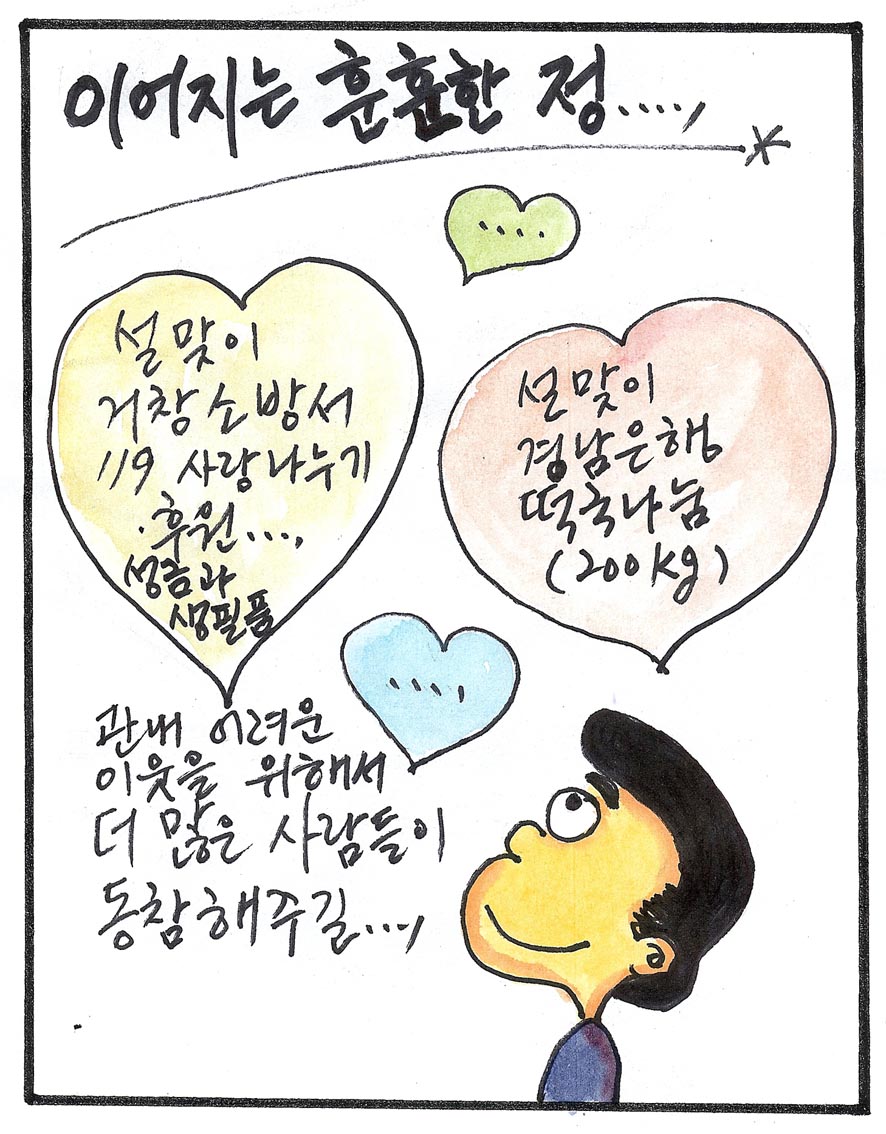 이어지는 훈훈한 정....,
....
설맞이
거창소방서
119 사랑나누기
·후원...,
성금과
생필품
설맞이
경남은행
떡국나눔
(200kg)
....,
관내 어려운
이웃을 위해서
더 많은 사람들이
동참해주길...,